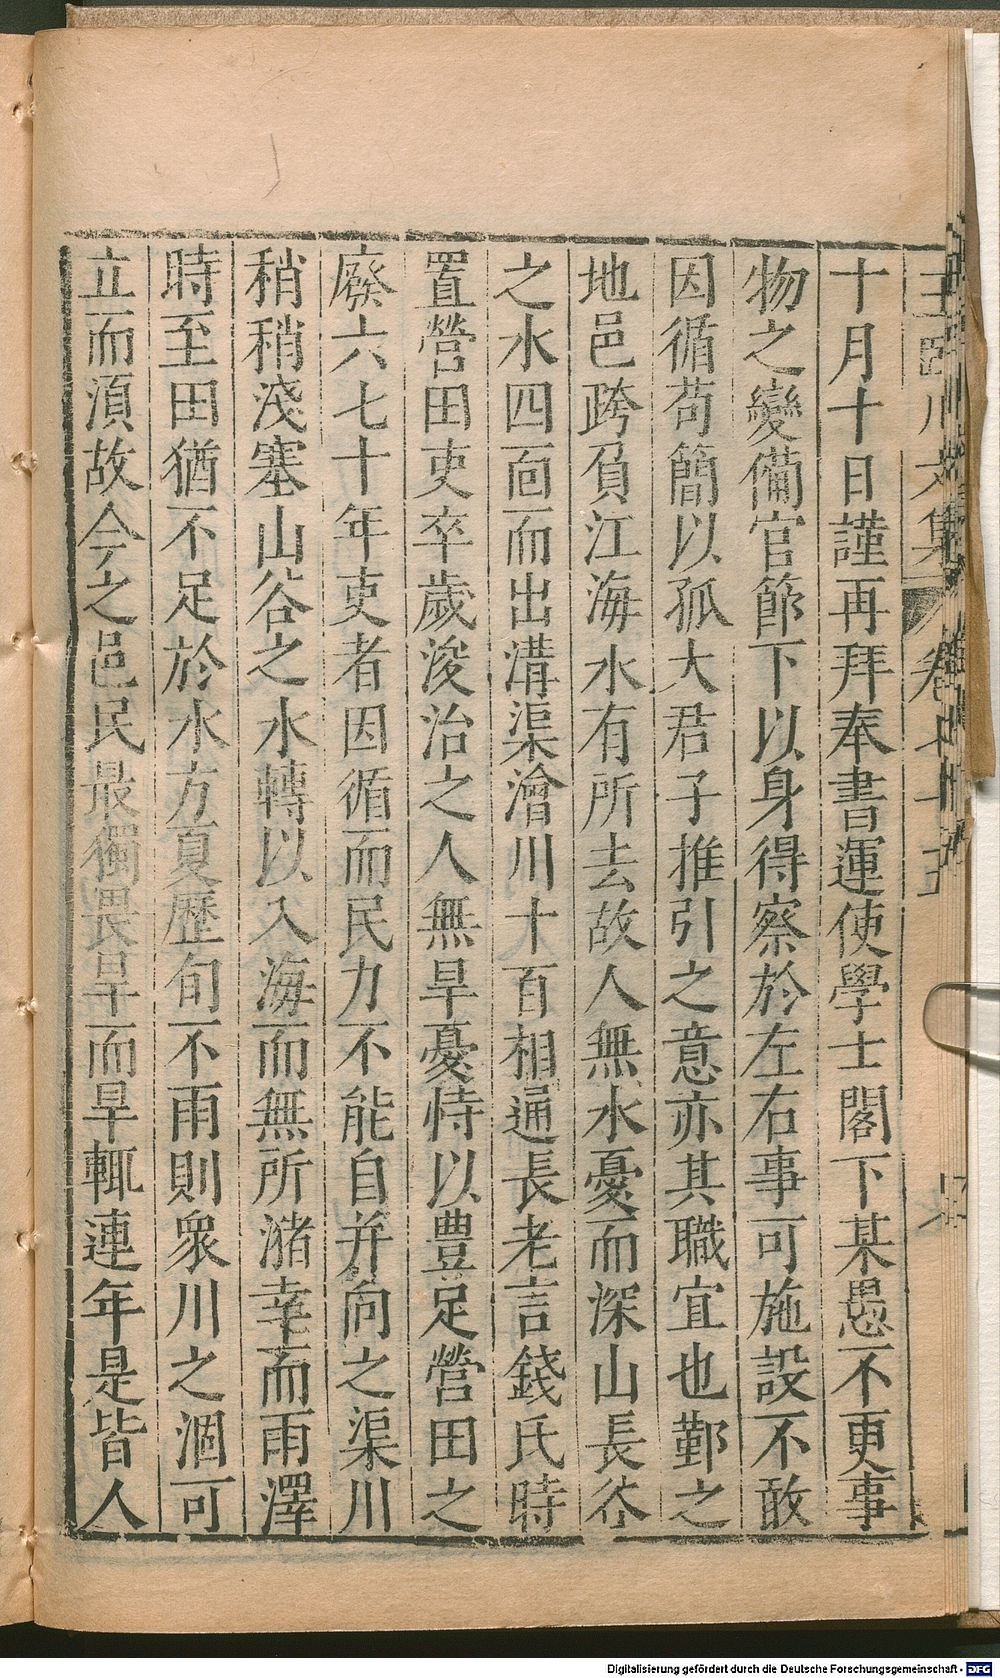 王臨川文集 卷七十五
十月十日謹再拜奉書運使學士閣下某愚不更事
物之變備官節下以身得察於左右事可施設不敢
因循苟簡以孤大君子推引之意亦其職宜也鄞之
地邑跨負江海水有所去故人無水憂而深山長谷
之水四面而出溝渠澮川十百相通長老言錢氏時
置營田吏卒歲浚治之人無旱憂恃以豊足營田之
廢六七十年吏者因循而民力不能自并向之渠川
稍稍淺塞山谷之水轉以入海而無所瀦幸而雨澤
時至田猶不足於水方夏歷旬不雨則衆川之涸可
立而湏故今之邑民最獨畏旱而旱輒連年是皆人
Digitalisierung gefördert durch die Deutsche Forschungsgemeinschaft - DFG